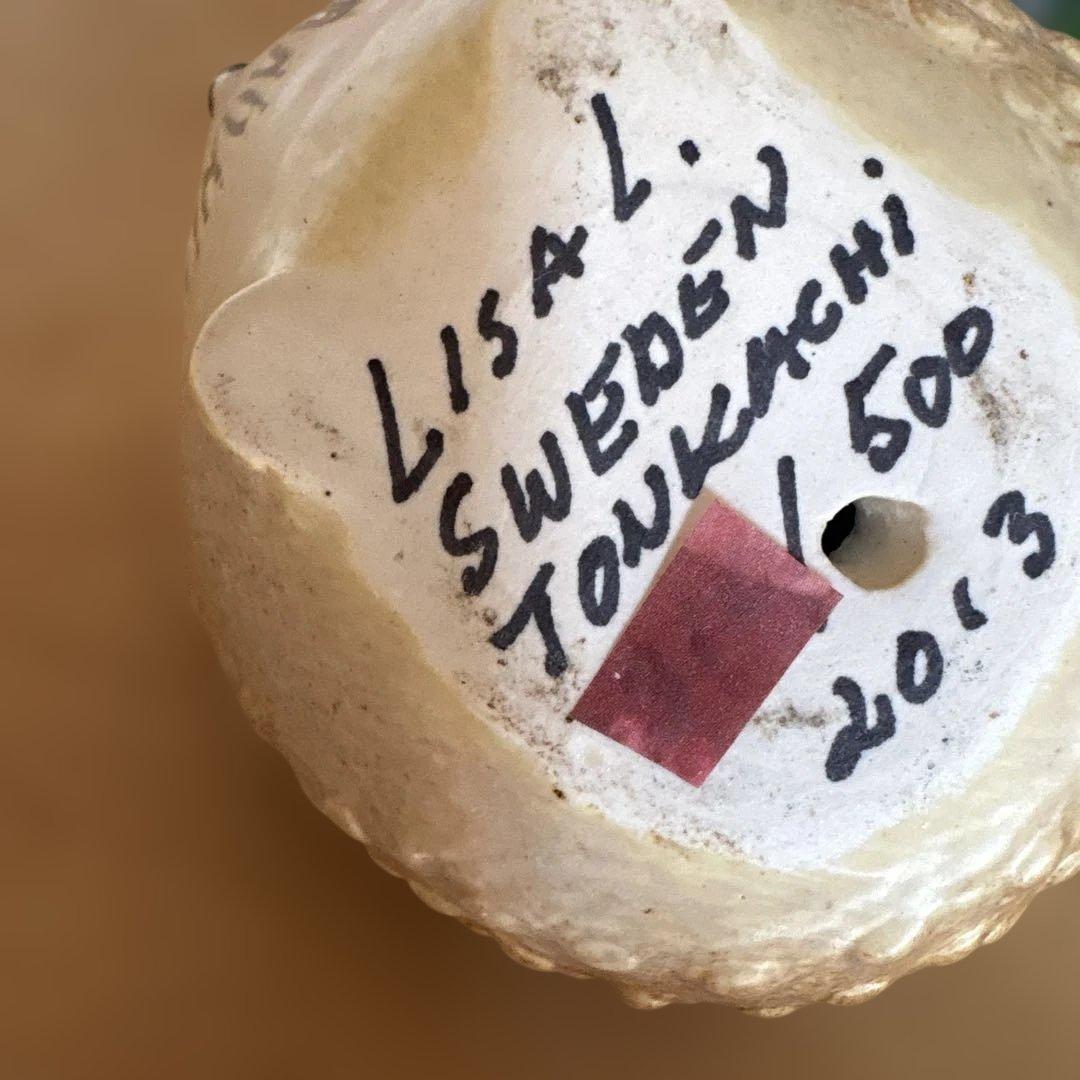 LISA L.
SWEDEN
TONKACHI
1 500
20.3